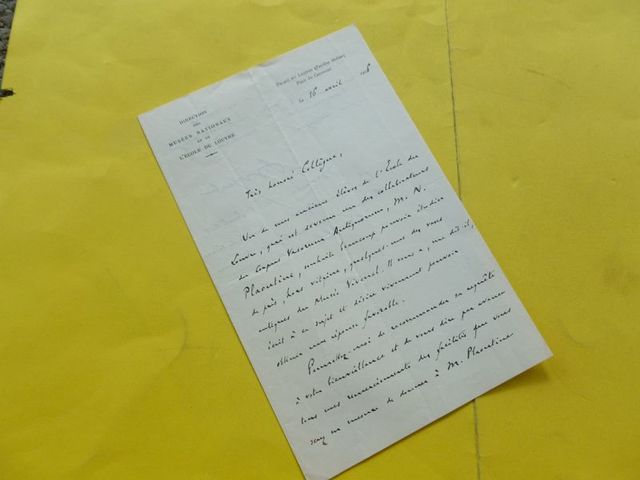 DIRECTION
DES
MUSÉES NATIONAUX
ET DE
L'ÉCOLE DU LOUVRE
Palais du Louvre (Pavillon Mollien)
Place du Carrousel
le 16 avril
Très honoré Collègue,
Un de mes anciens élèves de l'Ecole du
Louvre, qui est devenu un des collaborateurs
du Corpus Vasorum Antiquorum, M. N.
Plaoutine, souhaite beaucoup pouvoir étudier
de près, hors vitrine, quelques-uns des vases
antiques du Musée Vivenel. Il vous a, me dit-il,
écrit à ce sujet et désire vivement pouvoir
obtenir une réponse favorable.
Permettez-moi de recommander sa requête
à votre bienveillance et de vous dire par avance
tous mes remerciements des facilités que vous
serez en mesure de donner à M. Plaoutine